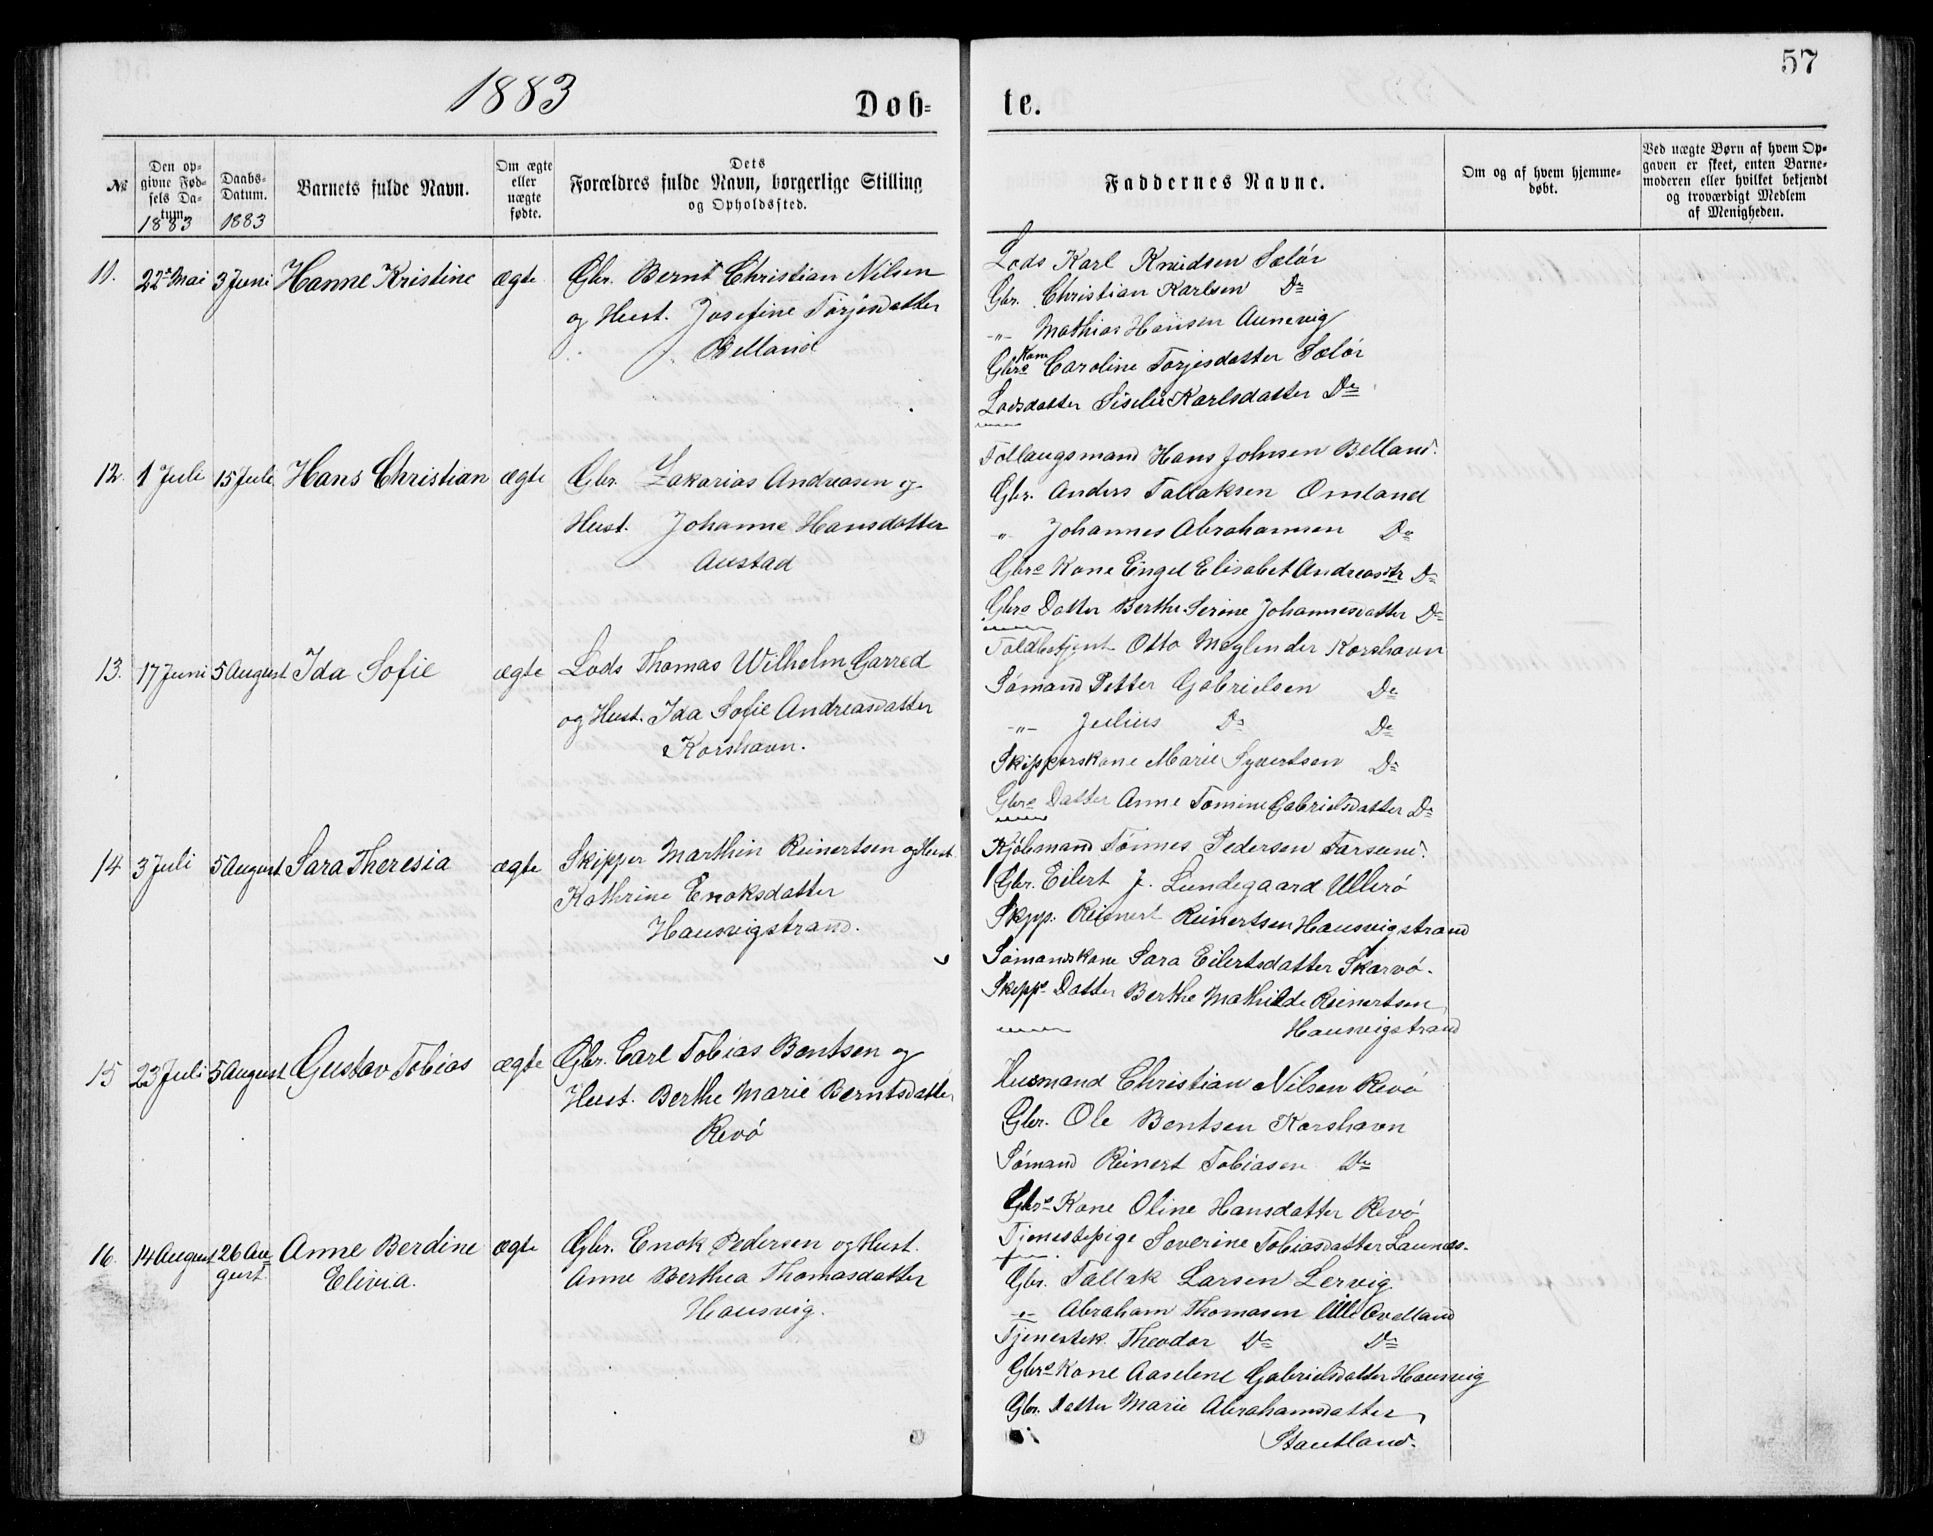 57
1883
Døb-
te.
№
Den op-
givne Fød-
sels Da-
tum.
1883
Daabs-
Datum.
1883
Barnets fulde Navn.
Om ægte
eller
uægte
fødte.
Dets
Forældres fulde Navn, borgerlige Stilling
og Opholdssted.
Faddernes Navne.
Om og af hvem hjemme-
døbt.
Ved uægte Børn af hvem Op-
gaven er skeet, enten Barne-
moderen eller hvilket bekjendt
og troværdigt Medlem
af Menigheden.
11. 22de Mai 3 Juni Hanne Kristine ægte
Gbr. Bernt Christian Nilsen
og Hust. Josefine Torjesdatter
Belland
Lods Karl Knudsen Sælør
Gbr. Christian Karlsen Do
-"- Mathias Hansen Aunevig
Gbrs Kone Caroline Torjesdatter Sælør
Lodsdatter Karlsdatter Do
12. 1 Juli 15 Juli Hans Christian ægte
Gbr. Zakarias Andreasen og
Hust. Johanne Hansdatter
Austad
Hans Johnsen Belland.
Gbr. Anders Tallaksen Omland
" Johannes Abrahamsen Do
Gbrs Kone Engel Elisabet Andreasdtr Do
Gbrs Datter Berthe Serine Johannesdatter Do
13. 17 Juni 5 August Ida Sofie ægte
Lods Thomas Wilhelm Garred
og Hust. Ida Sofie Andreasdatter
Korshavn.
Toldbetjent Otto Meylender Korshavn
Sømand Petter Gabrielsen Do
-"- Julius Do Do
Skipperskone Marie Syvertsen Do
Gbrs Datter Anne Tomine Gabrielsdatter Do
14 3 Juli 5 August Sara Theresia ægte
Skipper Marthin Reinertsen og Hust.
Kathrine Enoksdatter
Hausvigstrand.
Kjøbmand Tønnes Pedersen Farsund.
Gbr. Eilert J. Lundegaard Ullerø
Skpp. Reinert Reinertsen Hausvigstrand
Sømandskone Sara Eilertsdatter Skarvø.
Skipps Datter Berthe Mathilde Reinertsen
Hausvigstrand
15 23 Juli 5 August Gustav Tobias ægte
Gbr. Carl Tobias Bentsen og
Hust. Berthe Marie Berntsdatter
Revø
Husmand Christian Nilsen Revø
Gbr. Ole Bentsen Korshavn
Sømand Reinert Tobiasen Do
Gbrs Kone Oline Hansdatter Revø
Tjenestepige Severine Tobiasdatter Launes.
16. 14 August 26 Au-
gust Anne Berdine
Elivia. ægte
Gbr. Enok Pedersen og Hust.
Anne Berthea Thomasdatter
Hausvig.
Gbr. Tallak Larsen Lervig
-"- Abraham Thomasen Ovelland
Tjenestek. Theodor Do Do
Gbrs Kone Aaselene Gabrielsdatter Hausvig
Gbr. Datter Marie Abrahamsdatter
Stautland.